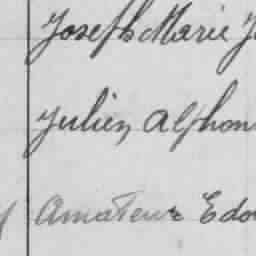 Joseph Marie J
Julien Alphon
Amateur Edou